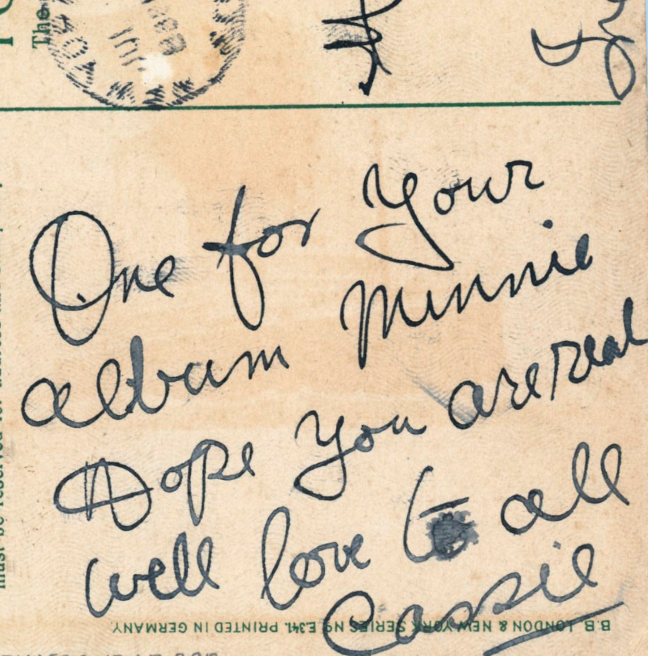 The
One for your
album Minnie
Hope you are real
well love to all
Cassie
B.B. LONDON & NEW YORK SERIES Nº E341. PRINTED IN GERMANY